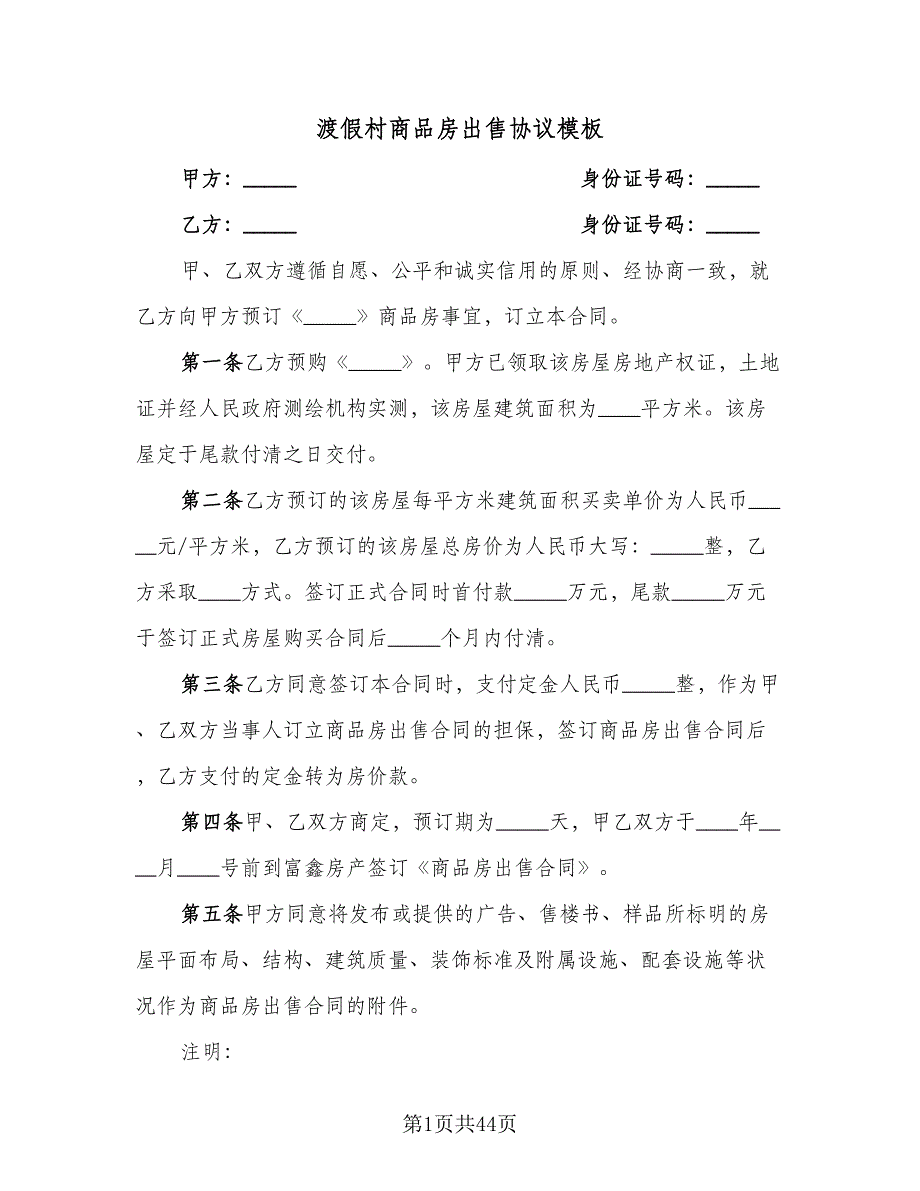 渡假村商品房出售协议模板
甲方：_____ 身份证号码：_____
乙方：_____ 身份证号码：_____
甲、乙双方遵循自愿、公平和诚实信用的原则、经协商一致，就
乙方向甲方预订《_____》商品房事宜，订立本合同。
第一条乙方预购《_____》。甲方已领取该房屋房地产权证，土地
证并经人民政府测绘机构实测，该房屋建筑面积为____平方米。该房
屋定于尾款付清之日交付。
第二条乙方预订的该房屋每平方米建筑面积买卖单价为人民币___
__元/平方米，乙方预订的该房屋总房价为人民币大写：_____整，乙
方采取____方式。签订正式合同时首付款_____万元，尾款_____万元
于签订正式房屋购买合同后_____个月内付清。
第三条乙方同意签订本合同时，支付定金人民币_____整，作为甲
、乙双方当事人订立商品房出售合同的担保，签订商品房出售合同后
，乙方支付的定金转为房价款。
第四条甲、乙双方商定，预订期为_____天，甲乙双方于____年__
__月____号前到富鑫房产签订《商品房出售合同》。
第五条甲方同意将发布或提供的广告、售楼书、样品所标明的房
屋平面布局、结构、建筑质量、装饰标准及附属设施、配套设施等状
况作为商品房出售合同的附件。
注明：
第1页共44页